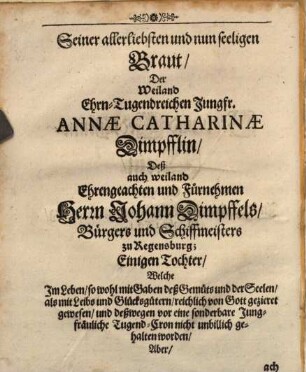 Seiner allerliebsten und nun seeligen
Braut/
Der
Weiland
Ehrn-Tugendreichen Jungfr.
ANNÆ CATHARINÆ
Dimpfflin/
Deß
auch weiland
Ehrengeachten und Fürnehmen
Herrn Johann Dimpffels/
Bürgers und Schiffmeisters
zu Regensburg;
Einigen Tochter/
Welche
Im Leben/ so wohl mit Gaben deß Gemüts und der Seelen/
als mit Leibs und Glücksgütern/ reichlich von Gott gezieret
gewesen/ und deßwegen vor eine sonderbare Jung-
fräuliche Tugend-Cron nicht unbillich ge-
halten worden/
Aber/
ach